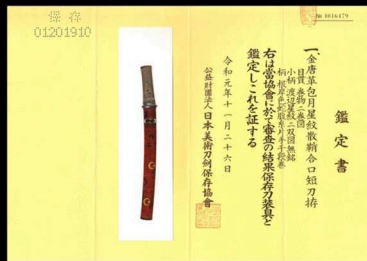 保存
01201910
№ 1016479
鑑定書
一、金唐革包月星紋散鞘合口短刀拵
目貫 巻物二巻図
小柄 渡辺星紋二双図 無銘
右は當協會に於て審査の結果保存刀装具と
鑑定しこれを証する
令和元年十一月二十六日
公益財團法人日本美術刀剣保存協會